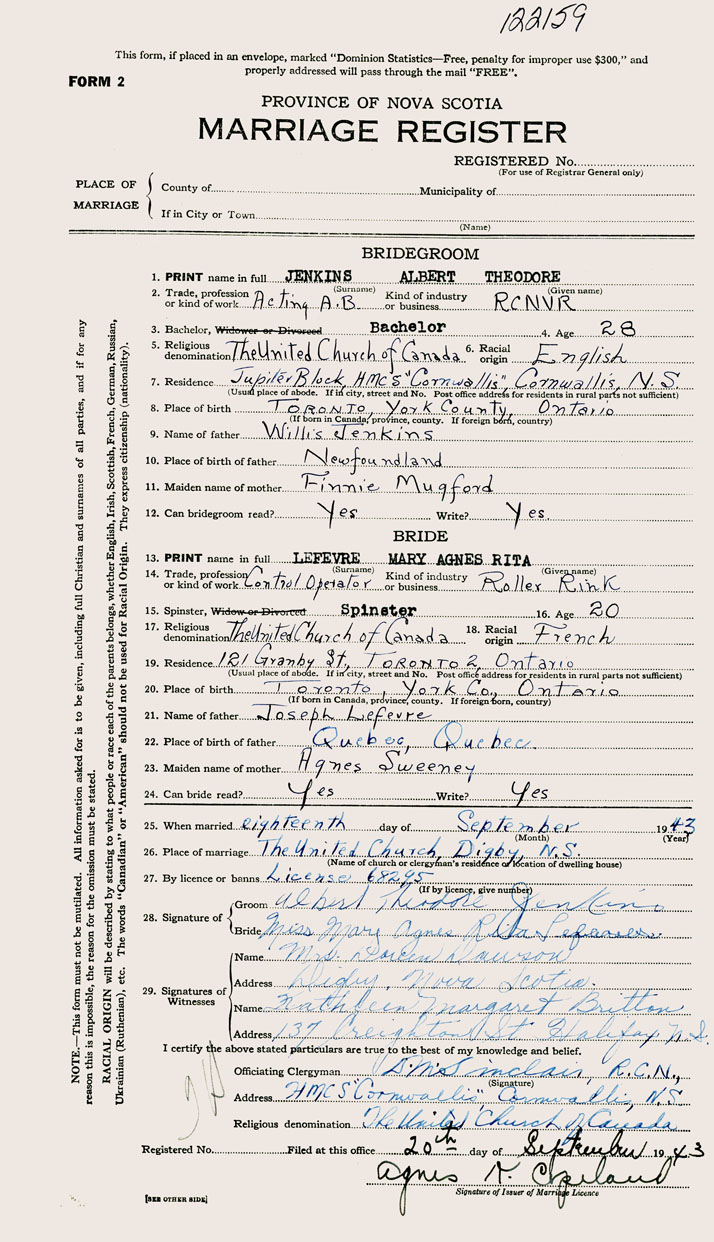 122159
This form, if placed in an envelope, marked "Dominion Statistics—Free, penalty for improper use $300," and
properly addressed will pass through the mail "FREE".
FORM 2
PROVINCE OF NOVA SCOTIA
MARRIAGE REGISTER
REGISTERED No.
(For use of Registrar General only)
PLACE OF MARRIAGE
County of Municipality of
If in City or Town
(Name)
BRIDEGROOM
1. PRINT name in full JENKINS ALBERT THEODORE
(Surname) (Given name)
2. Trade, profession or kind of work Acting A.B Kind of industry or business RCNVR
3. Bachelor, Widower or Divorced Bachelor 4. Age 28
5. Religious denomination The United Church of Canada 6. Racial origin English
7. Residence Jupiter Block, HMCS "Cornwallis", Cornwallis, N.S.
(Usual place of abode. If in city, street and No. Post office address for residents in rural parts not sufficient)
8. Place of birth Toronto, York County, Ontario
(If born in Canada, province, county. If foreign born, country)
9. Name of father Willis Jenkins
10. Place of birth of father Newfoundland
11. Maiden name of mother Finnie Mugford
12. Can bridegroom read? Yes Write? Yes.
BRIDE
13. PRINT name in full LEFEVRE MARY AGNES RITA
(Surname) (Given name)
14. Trade, profession or kind of work Control Operator Kind of industry or business Roller Rink
15. Spinster, Widow or Divorced Spinster 16. Age 20
17. Religious denomination The United Church of Canada 18. Racial origin French
19. Residence 121 Granby St., Toronto 2, Ontario
(Usual place of abode. If in city, street and No. Post office address for residents in rural parts not sufficient)
20. Place of birth Toronto, York Co., Ontario
(If born in Canada, province, county. If foreign born, country)
21. Name of father Joseph Lefevre
22. Place of birth of father Quebec, Quebec.
23. Maiden name of mother Agnes Sweeney
24. Can bride read? Yes Write? Yes
25. When married eighteenth day of September 1943
(Month) (Year)
26. Place of marriage The United Church, Digby, N.S.
(Name of church or clergyman's residence or location of dwelling house)
27. By licence or banns License 68295
(If by licence, give number)
28. Signature of
Groom Albert Theodore Jenkins
Bride Miss Mary Agnes Rita Lefevre.
29. Signatures of Witnesses
Name Mrs. Doreen Dawson
Address Digby, Nova Scotia.
Name Kathleen Margaret Britton
Address 137 Creighton St Halifax N.S.
I certify the above stated particulars are true to the best of my knowledge and belief.
Officiating Clergyman D. M. Sinclair R.C.N.,
(Signature)
Address HMCS "Cornwallis" Cornwallis, N.S
Religious denomination The United Church of Canada
Registered No. Filed at this office 20th day of September 1943
Agnes N. Copeland
Signature of Issuer of Marriage Licence
[SEE OTHER SIDE]
NOTE.—This form must not be mutilated. All information asked for is to be given, including full Christian and surnames of all parties, and if for any
reason this is impossible, the reason for the omission must be stated.
RACIAL ORIGIN will be described by stating to what people or race each of the parents belongs, whether English, Irish, Scottish, French, German, Russian,
Ukrainian (Ruthenian), etc. The words "Canadian" or "American" should not be used for Racial Origin. They express citizenship (nationality).